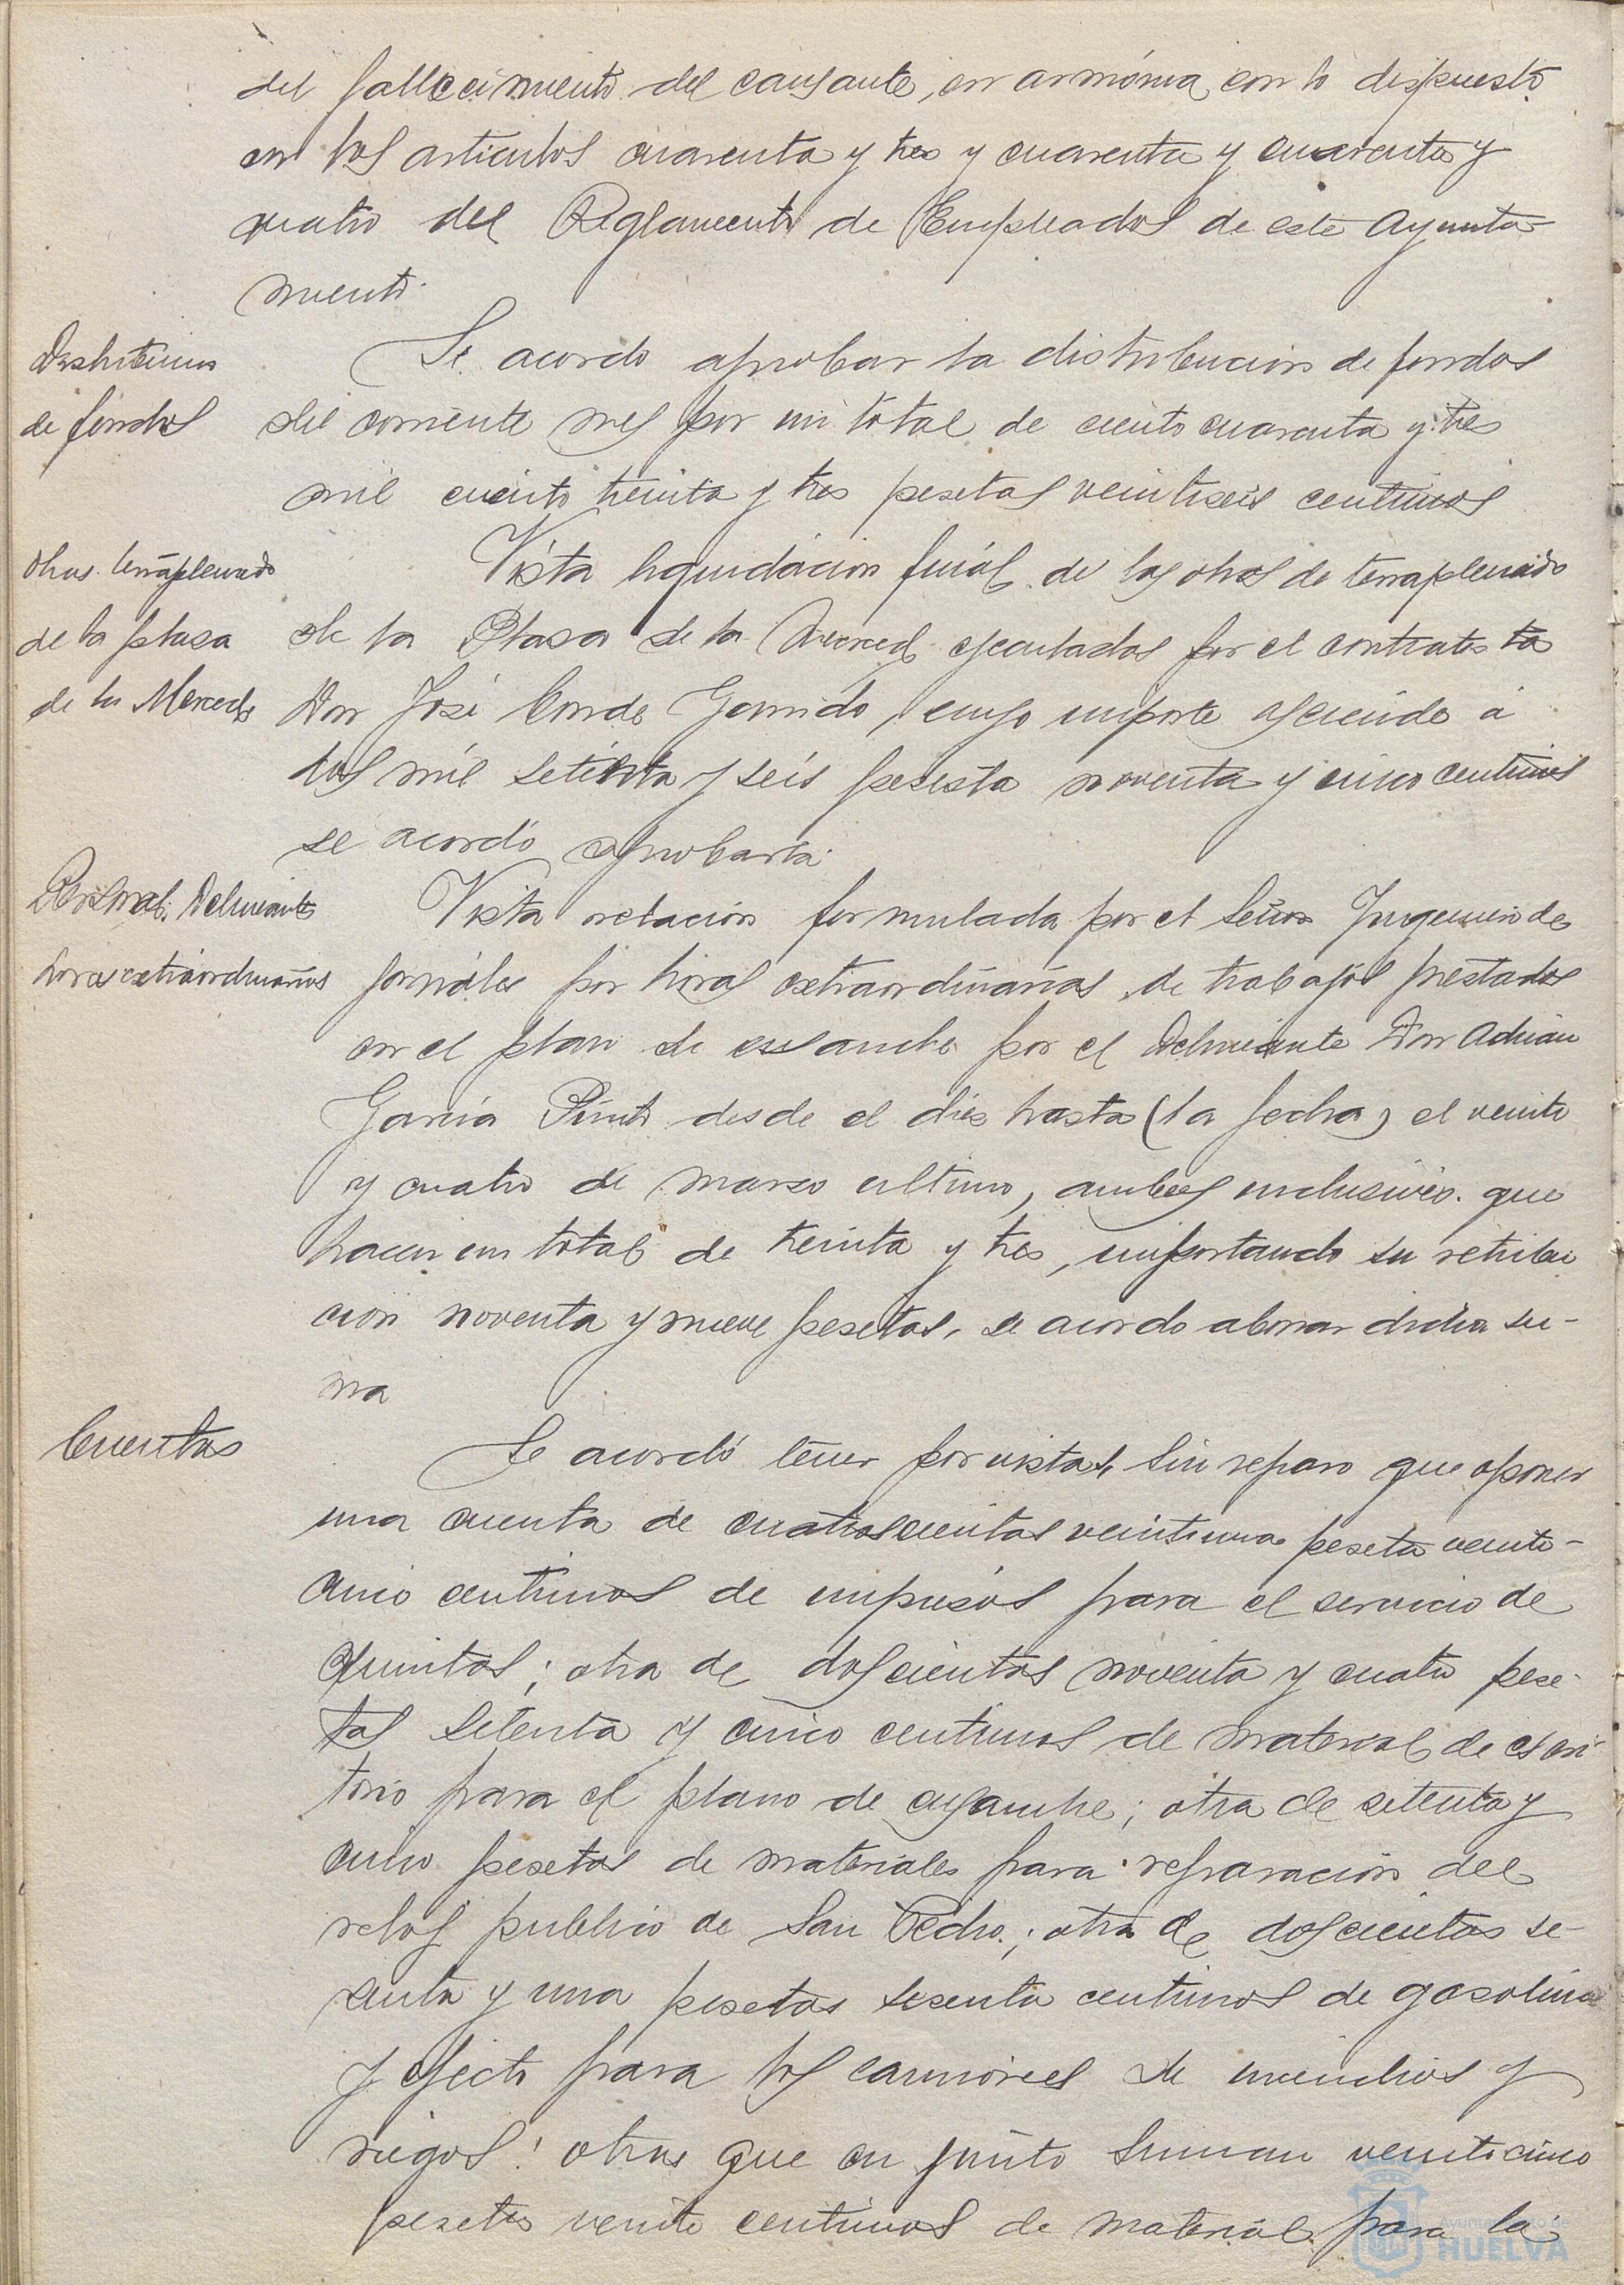 del fallecimiento del causante, en armónia con lo dispuesto
en los articulos cuarenta y tres y cuarenta y cuarenta y
cuatro del Reglamento de Empleados de este Ayunta-
miento.
Distribución
de fondos
Se acordo aprobar la distribución de fondos
del corriente mes por un total de ciento cuarenta y tres
mil ciento treinta y tres pesetas veintiseis centimos
Obras terraplenado
de la plasa
de la Merced
Vista liquidación final de las obras de terraplenado
de la Plasa de la Merced ejecutadas por el contratista
Don José Conde Garrido, cuyo importe asciende a
dos mil setenta y seis peseta noventa y cinco centimos
se acordó aprobarla.
Personal; Delineante
horas extraordinarias
Vista relación formulada por el Señor Ingeniero de
jornales por horas extraordinarias de trabajos prestados
en el plan de ensanche por el delineante Don Adrian
Garcia Pinto desde el dies hasta (la fecha) el veinte
y cuatro de marzo ultimo, ambos inclusives. que
hacen un total de treinta y tres, importando su retribu
cion noventa y nueve pesetas, se acordo abonar dicha su-
ma
Cuentas
Se acordó tener por vistas, sin reparo que oponer
una cuenta de cuatroscientas veintiuna peseta veinte-
cinco centimos de impresos para el servicio de
Quintas; otra de doscientas noventa y cuatro pese-
tas setenta y cinco centimos de material de escri-
torio para el plano de ensanche; otra de setenta y
cinco pesetas de materiales para reparacion del
reloj publico de San Pedro; otra de doscientas se-
senta y una pesetas sesenta centimos de gasolina
y efecto para los camiones de incendios y
riegos; otras que en junto suman veinticinco
pesetas veinte centimos de material para la
Ayuntamiento de
HUELVA